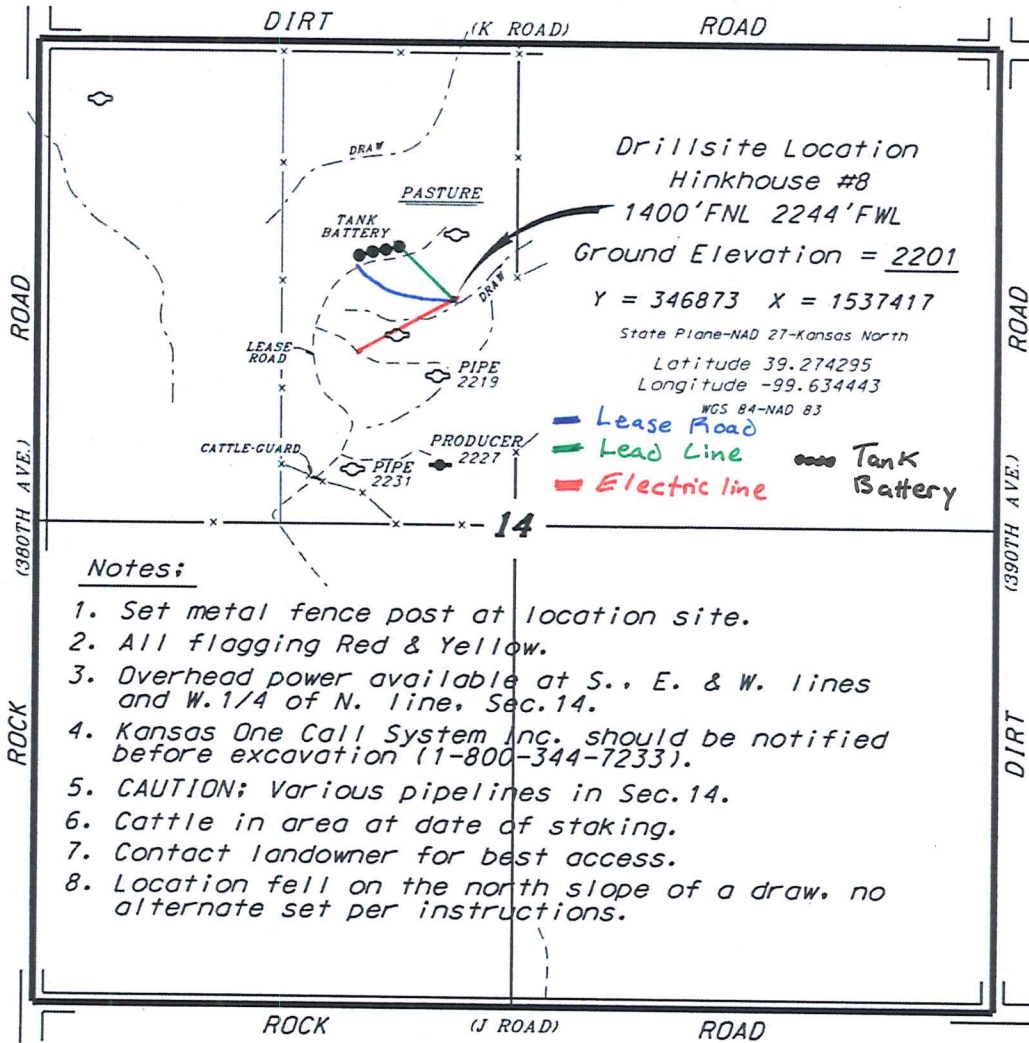 DIRT (K ROAD) ROAD
DRAW
PASTURE
TANK
BATTERY
DRAW
LEASE
ROAD
PIPE
2219
CATTLE-GUARD
PIPE
2231
PRODUCER
2227
Drillsite Location
Hinkhouse #8
1400'FNL 2244'FWL
Ground Elevation = 2201
Y = 346873 X = 1537417
State Plane-NAD 27-Kansas North
Latitude 39.274295
Longitude -99.634443
WGS 84-NAD 83
Lease Road
Lead Line
Electric line
Tank
Battery
14
ROCK (380TH AVE.) ROAD
DIRT (390TH AVE.) ROAD
Notes:
1. Set metal fence post at location site.
2. All flagging Red & Yellow.
3. Overhead power available at S., E. & W. lines
and W.1/4 of N. line, Sec.14.
4. Kansas One Call System Inc. should be notified
before excavation (1-800-344-7233).
5. CAUTION: Various pipelines in Sec.14.
6. Cattle in area at date of staking.
7. Contact landowner for best access.
8. Location fell on the north slope of a draw, no
alternate set per instructions.
ROCK (J ROAD) ROAD